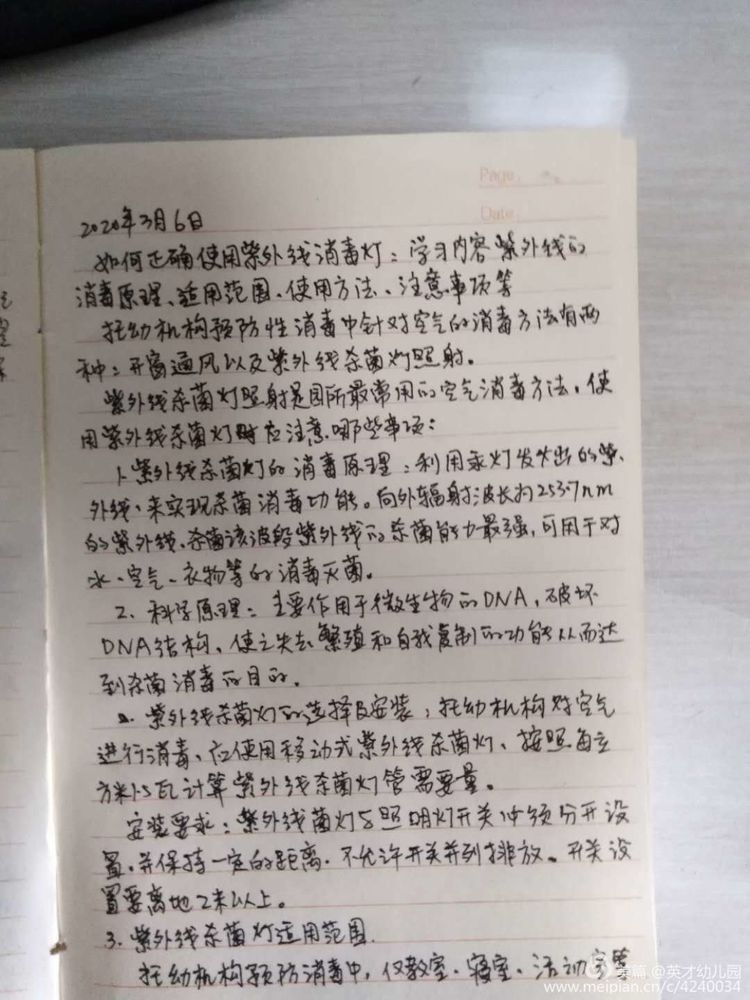 Page:
Date:
2020年3月6日
如何正确使用紫外线消毒灯：学习内容紫外线的
消毒原理、适用范围、使用方法、注意事项等
托幼机构预防性消毒中针对空气的消毒方法有两
种：开窗通风以及紫外线杀菌灯照射。
紫外线杀菌灯照射是园所最常用的空气消毒方法，使
用紫外线杀菌灯时应注意哪些事项：
1、紫外线杀菌灯的消毒原理：利用汞灯发出的紫
外线，来实现杀菌消毒功能。向外辐射波长为2537nm
的紫外线，杀菌该波段紫外线的杀菌能力最强，可用于对
水、空气、衣物等的消毒灭菌。
2、科学原理：主要作用于微生物的DNA，破坏
DNA结构，使之失去繁殖和自我复制的功能从而达
到杀菌消毒的目的。
2、紫外线杀菌灯的选择及安装：托幼机构对空气
进行消毒、应使用移动式紫外线杀菌灯、按照每立
方米1.5瓦计算紫外线杀菌灯管需要量。
安装要求：紫外线菌灯与照明灯开关必须分开设
置，并保持一定的距离，不允许开关并列排放。开关设
置要离地2米以上。
3、紫外线杀菌灯适用范围
托幼机构预防消毒中，仅教室、寝室、活动室等
美篇 @英才幼儿园
www.meipian.cn/c/4240034